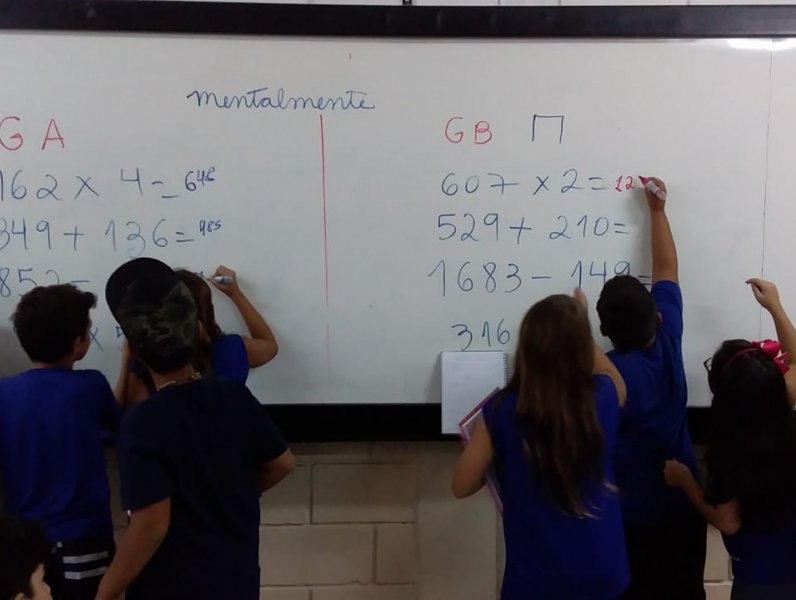 mentalmente
GA
162 x 4 = 648
349 + 136 = 485
852 -
x
GB
607 x 2 = 12
529 + 210 =
1683 - 149 =
316